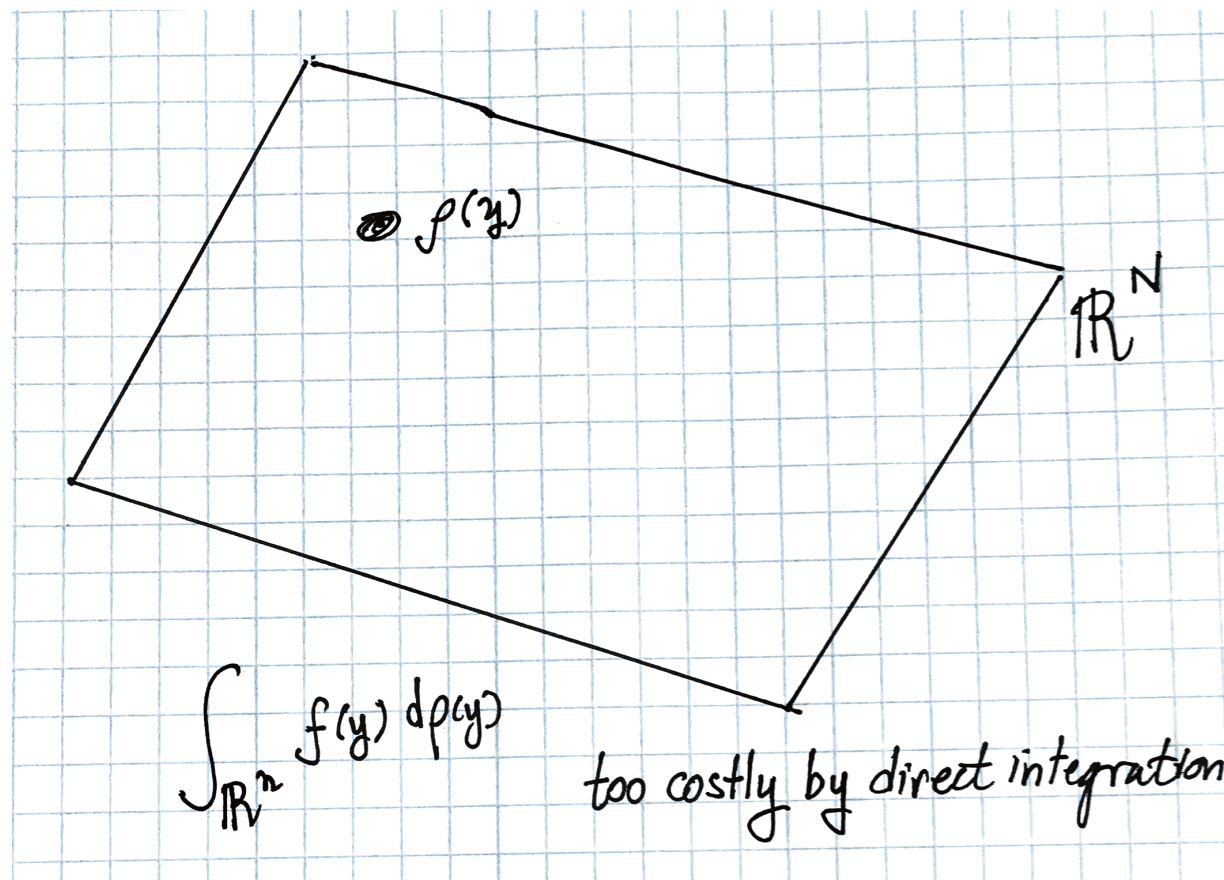 ρ(y)
ℝ^N
∫_{ℝ^n} f(y) dρ(y)
too costly by direct integration